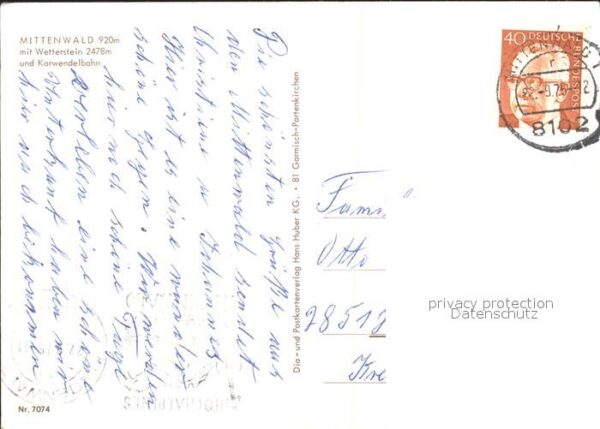 MITTENWALD 920m
mit Wetterstein 2478m
und Karwendelbahn
Die schönsten Grüße aus
dem Mittenwald sendet
Christine u Johannes
Hier ist es eine wunder
schöne Gegend. Wir werden
hier noch schöne Tage
verleben eine schöne
Unterkunft haben wir
hier auch bekommen
Dia- und Postkartenverlag Hans Huber KG. • 81 Garmisch-Partenkirchen
Nr. 7074
40 DEUTSCHE
BUNDESPOST
MITTENWALD 1
8102
Fami
Otto
28512
Kre
privacy protection
Datenschutz